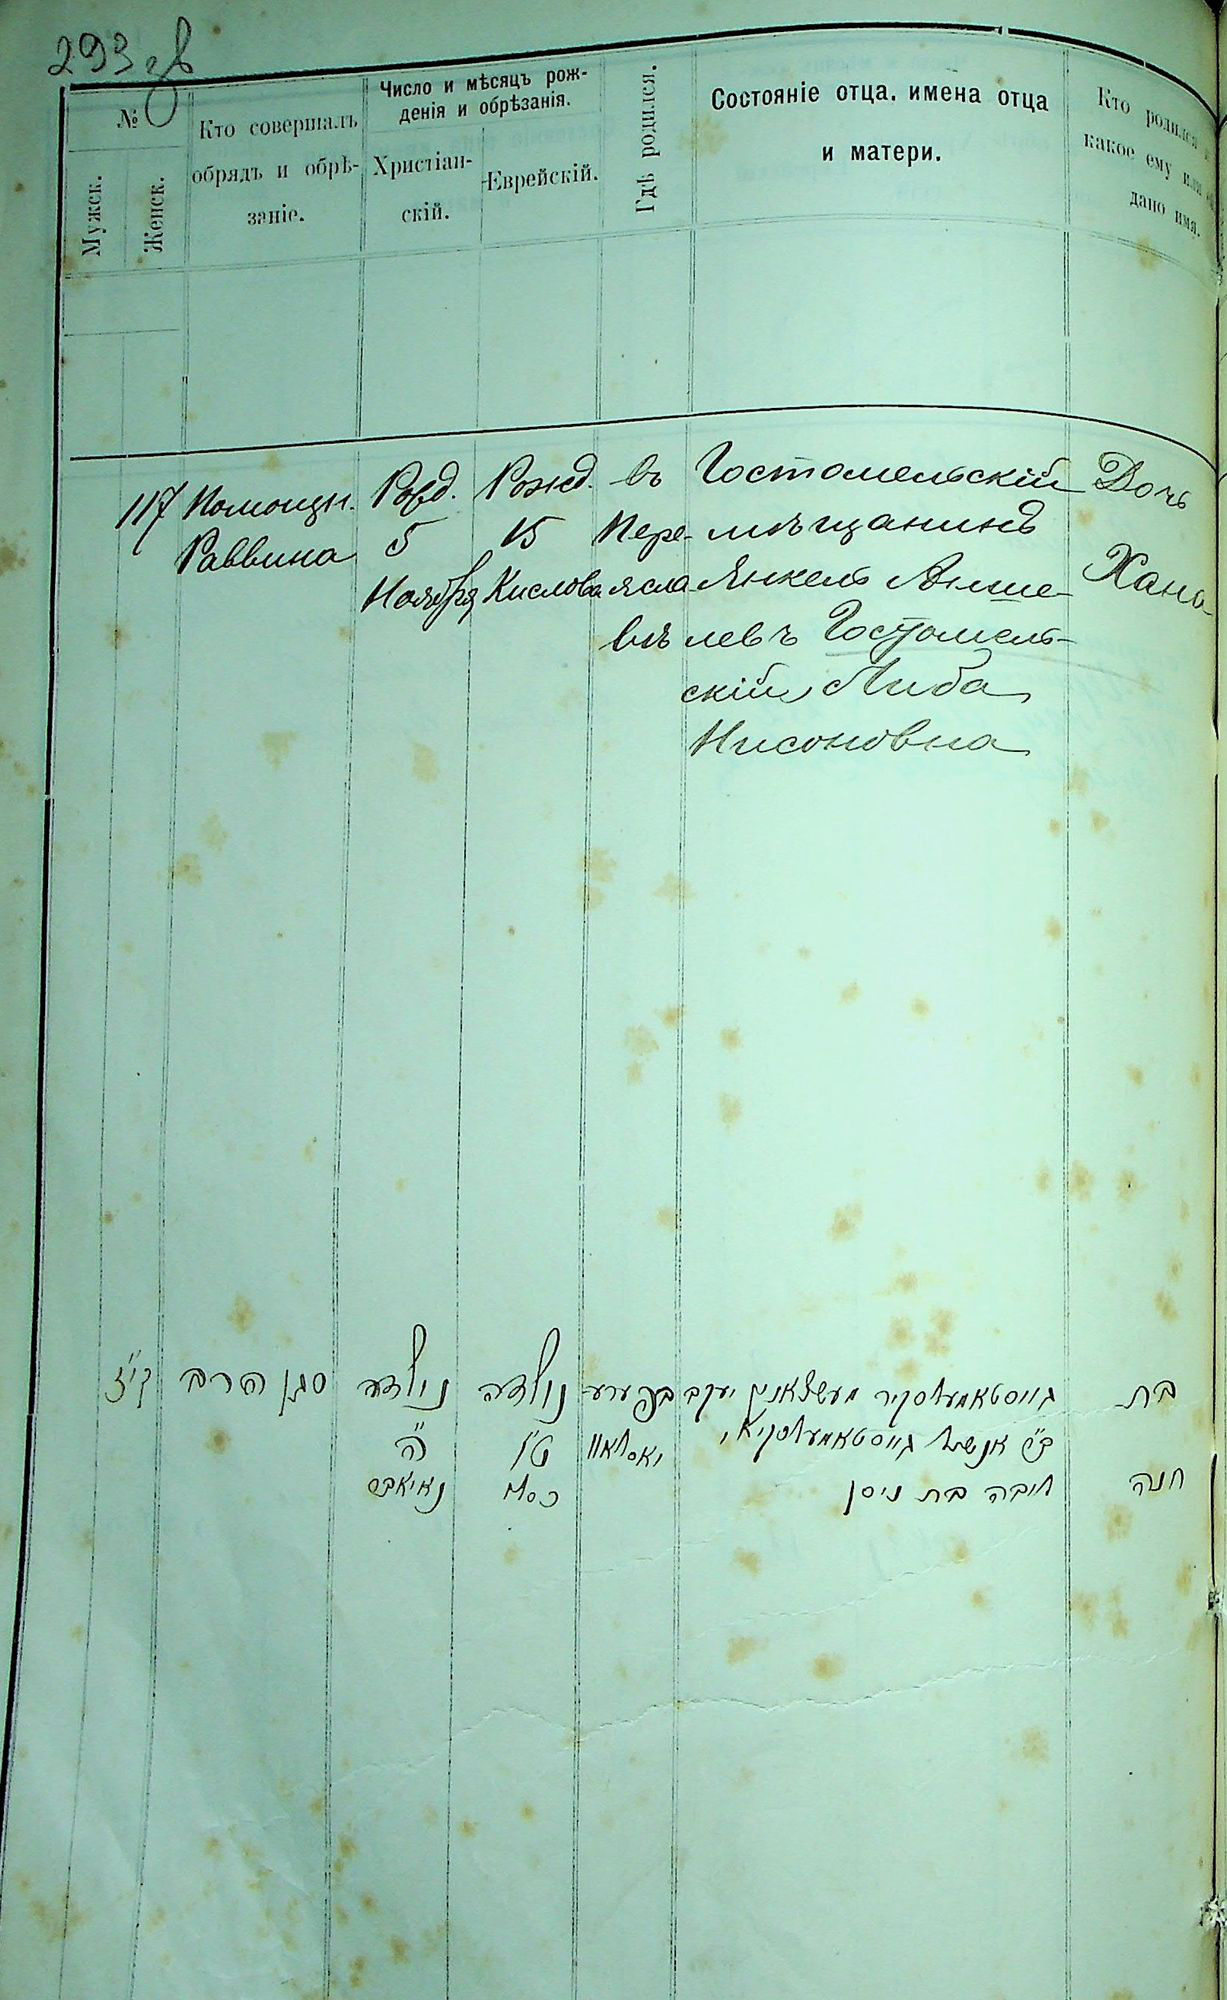 293 зв
№
Мужск.
Женск.
Кто совершалъ
обрядъ и обрѣ-
заніе.
Число и мѣсяцъ рож-
денія и обрѣзанія.
Христіан-
скій.
Еврейскій.
Гдѣ родился.
Состояніе отца, имена отца
и матери.
Кто родился
какое ему или
дано имя.
117
Помощн.
Раввина
Рожд.
5
Ноября
Рожд.
15
Кислова
въ
Пере-
ясла
влѣ
Гостомельскій
мѣщанинъ
Янкель Анше-
левъ Гостомель-
скій, Либа
Нисоновна
Дочь
Хана
קי"ז
סגן הרב
נולדה
ה'
נאיאבר
נולדה
ט"ו
כסלו
בפערע
יאסלאוו
גוסטאמעלסקיר מעשצאנין יעקב
ב"ר אנשיל גוסטאמעלסקי
ליבה בת ניסן
בת
חנה